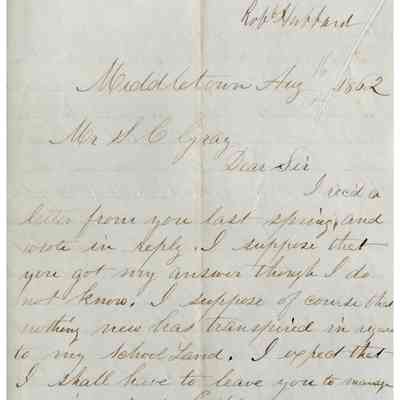 Robt Hubbard
Middletown Aug 16 1862
Mr S. C Gray
Dear Sir
I rec'd a
letter from you last spring, and
wrote in reply. I suppose that
you got my answer though I do
not know. I suppose of course that
nothing new has transpired in regar
to my School Land. I expect that
I shall have to leave you to manage